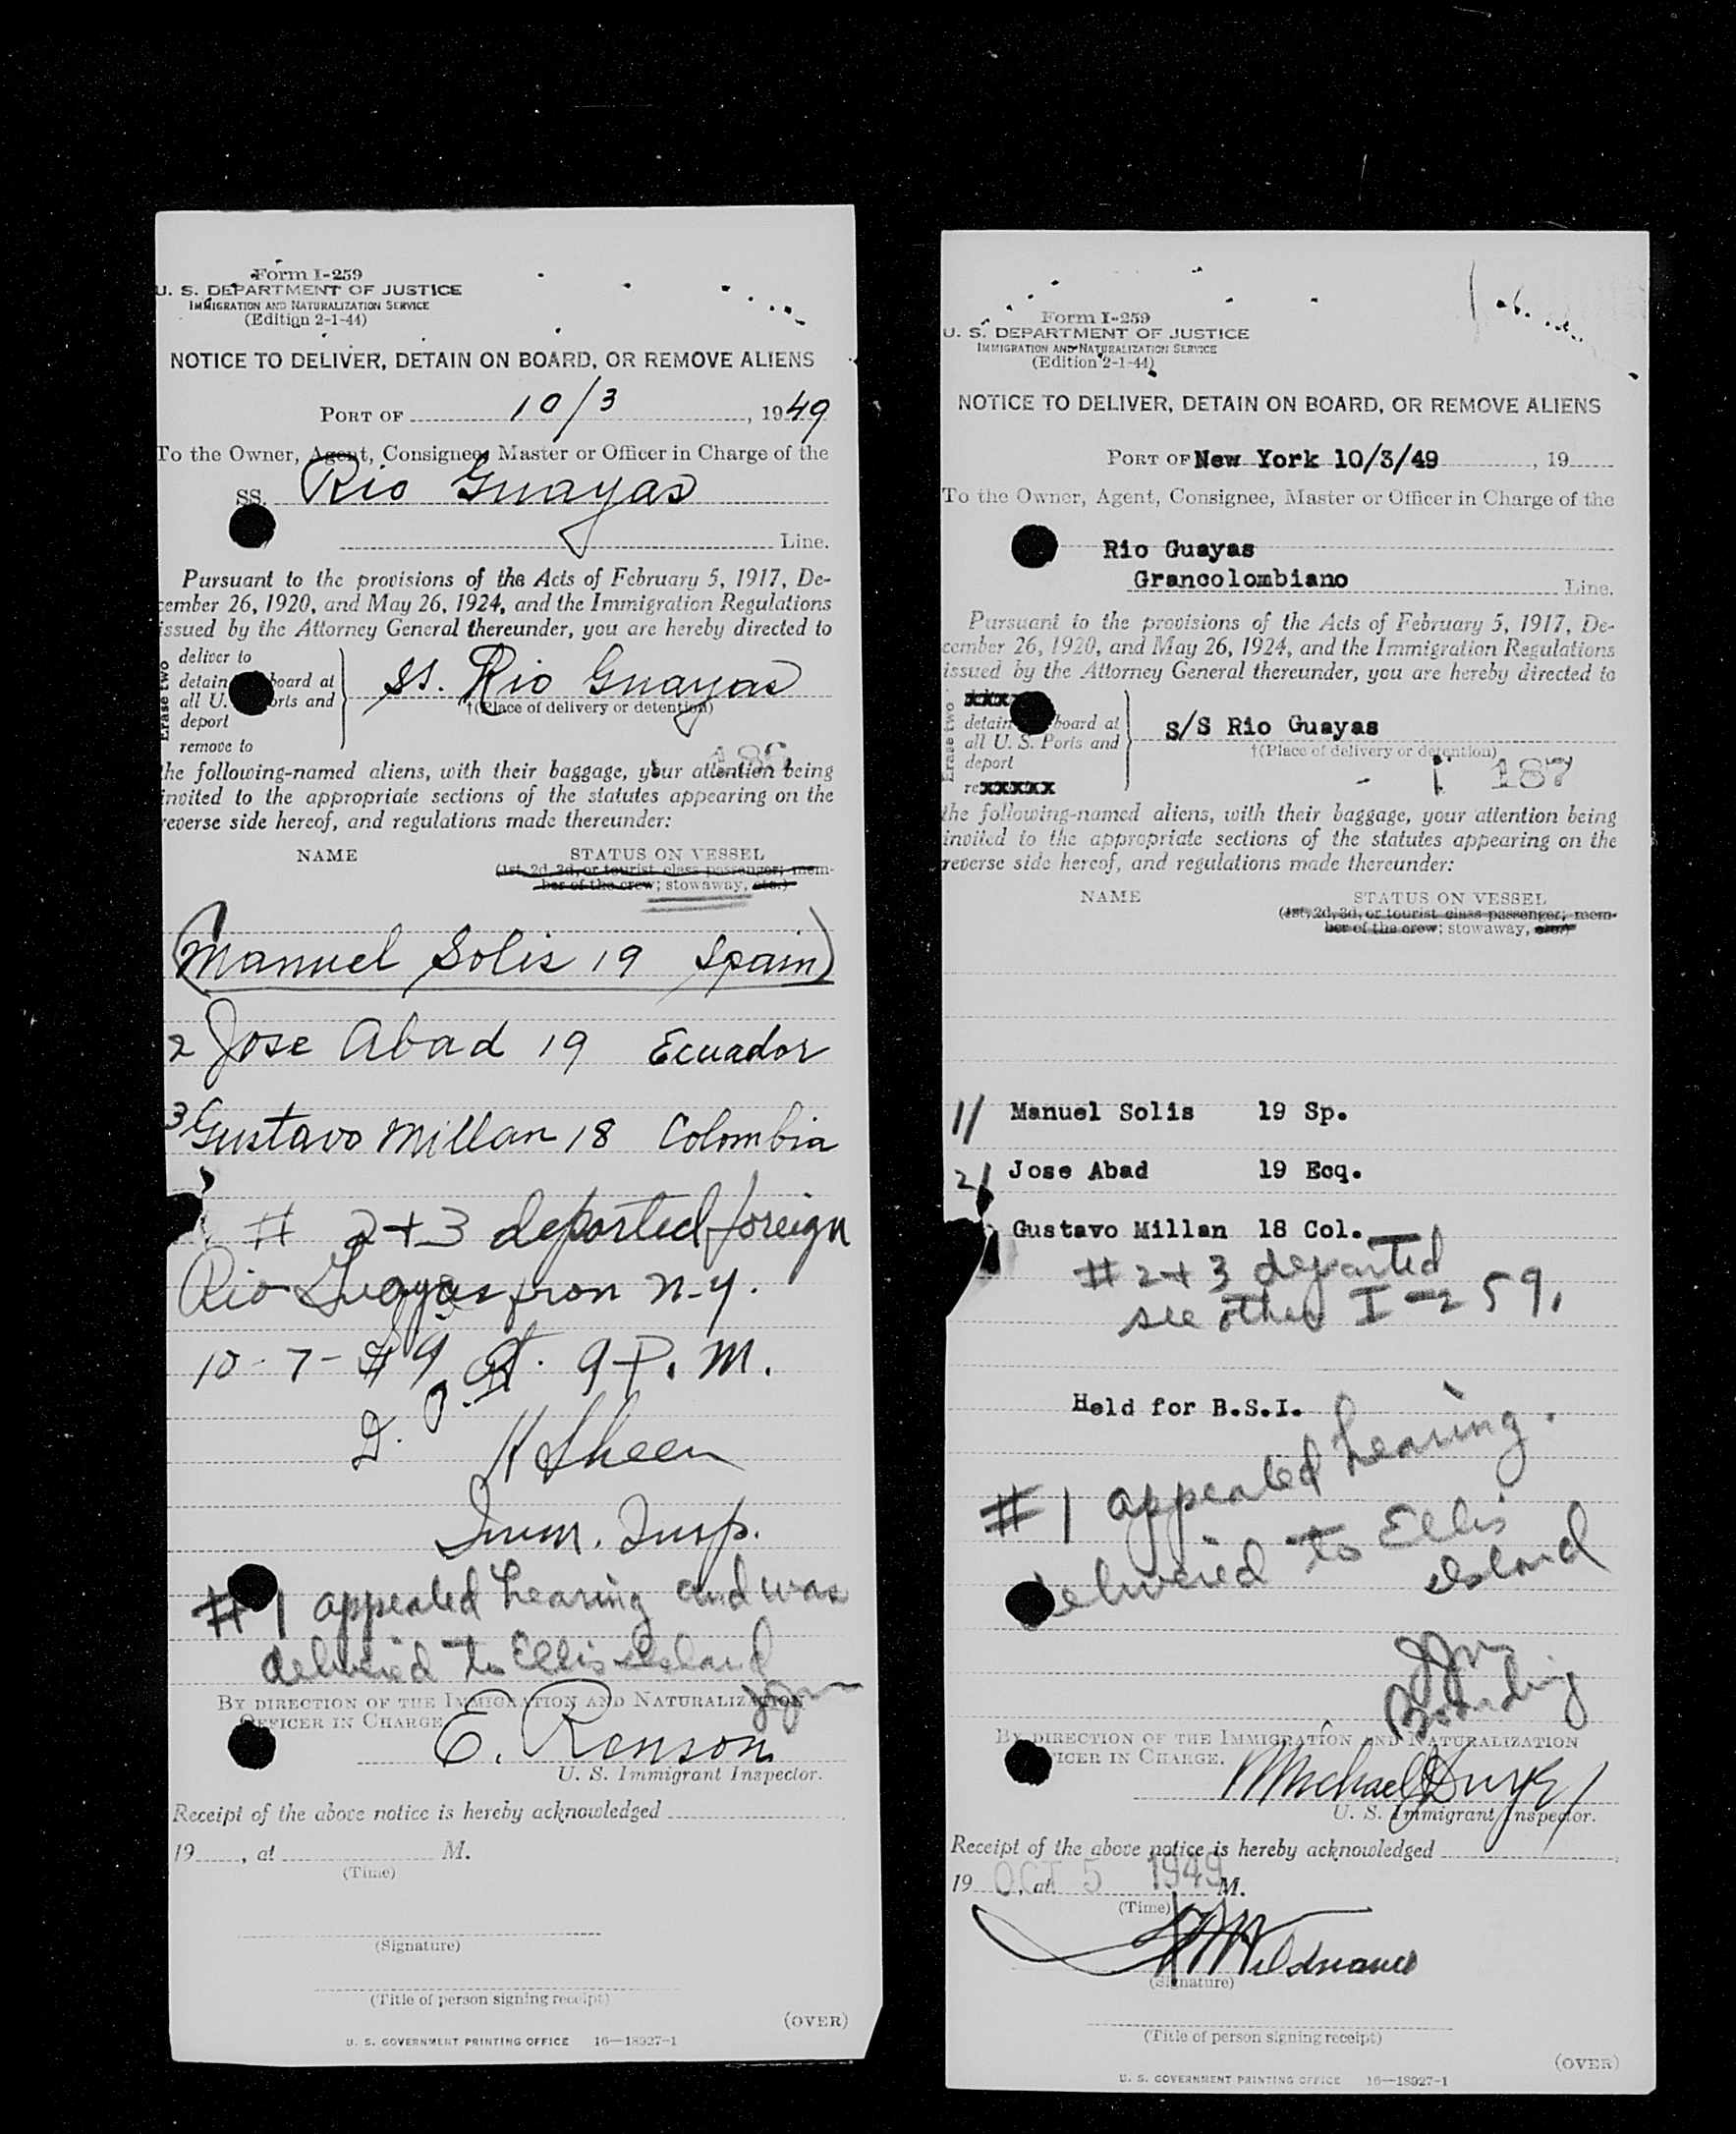 Form I-259
U. S. DEPARTMENT OF JUSTICE
IMMIGRATION AND NATURALIZATION SERVICE
(Edition 2-1-44)
NOTICE TO DELIVER, DETAIN ON BOARD, OR REMOVE ALIENS
PORT OF 10/3, 1949
To the Owner, Agent, Consignee, Master or Officer in Charge of the
SS. Rio Guayas
Line.
Pursuant to the provisions of the Acts of February 5, 1917, De-
cember 26, 1920, and May 26, 1924, and the Immigration Regulations
issued by the Attorney General thereunder, you are hereby directed to
Erase two
deliver to
detain board at
all U. orts and
deport
remove to
SS. Rio Guayas
†(Place of delivery or detention)
186
the following-named aliens, with their baggage, your attention being
invited to the appropriate sections of the statutes appearing on the
reverse side hereof, and regulations made thereunder:
NAME STATUS ON VESSEL
(1st, 2d, 3d, or tourist class passenger; mem-
ber of the crew; stowaway, etc.)
(Manuel Solis 19 Spain)
2 Jose Abad 19 Ecuador
3 Gustavo Millan 18 Colombia
# 2+3 deported foreign
Rio Guayas from N-Y.
10-7-49 at 9 P.M.
H Sheen
Imm. Insp.
#1 appealed hearing and was
delivered to Ellis Island
BY DIRECTION OF THE IMMIGRATION AND NATURALIZATION
OFFICER IN CHARGE
E. Renson
U. S. Immigrant Inspector.
Receipt of the above notice is hereby acknowledged
19 , at M.
(Time)
(Signature)
(Title of person signing receipt)
(OVER)
U. S. GOVERNMENT PRINTING OFFICE 16—18927-1
Form I-259
U. S. DEPARTMENT OF JUSTICE
IMMIGRATION AND NATURALIZATION SERVICE
(Edition 2-1-44)
NOTICE TO DELIVER, DETAIN ON BOARD, OR REMOVE ALIENS
PORT OF New York 10/3/49, 19
To the Owner, Agent, Consignee, Master or Officer in Charge of the
Rio Guayas
Grancolombiano Line.
Pursuant to the provisions of the Acts of February 5, 1917, De-
cember 26, 1920, and May 26, 1924, and the Immigration Regulations
issued by the Attorney General thereunder, you are hereby directed to
Erase two
xxx
detain board at
all U. S. Ports and
deport
rexxxxx
S/S Rio Guayas
†(Place of delivery or detention)
187
the following-named aliens, with their baggage, your attention being
invited to the appropriate sections of the statutes appearing on the
reverse side hereof, and regulations made thereunder:
NAME STATUS ON VESSEL
(1st, 2d, 3d, or tourist class passenger; mem-
ber of the crew; stowaway, etc.)
1/ Manuel Solis 19 Sp.
2/ Jose Abad 19 Ecq.
Gustavo Millan 18 Col.
# 2+3 departed
see other I-259.
Held for B.S.I.
#1 appealed hearing.
delivered to Ellis
Island
Boarding
BY DIRECTION OF THE IMMIGRATION AND NATURALIZATION
ICER IN CHARGE.
Michael
U. S. Immigrant Inspector.
Receipt of the above notice is hereby acknowledged
19 OCT 5 1949, at M.
(Time)
(Signature)
(Title of person signing receipt)
(OVER)
U. S. GOVERNMENT PRINTING OFFICE 16—18927-1